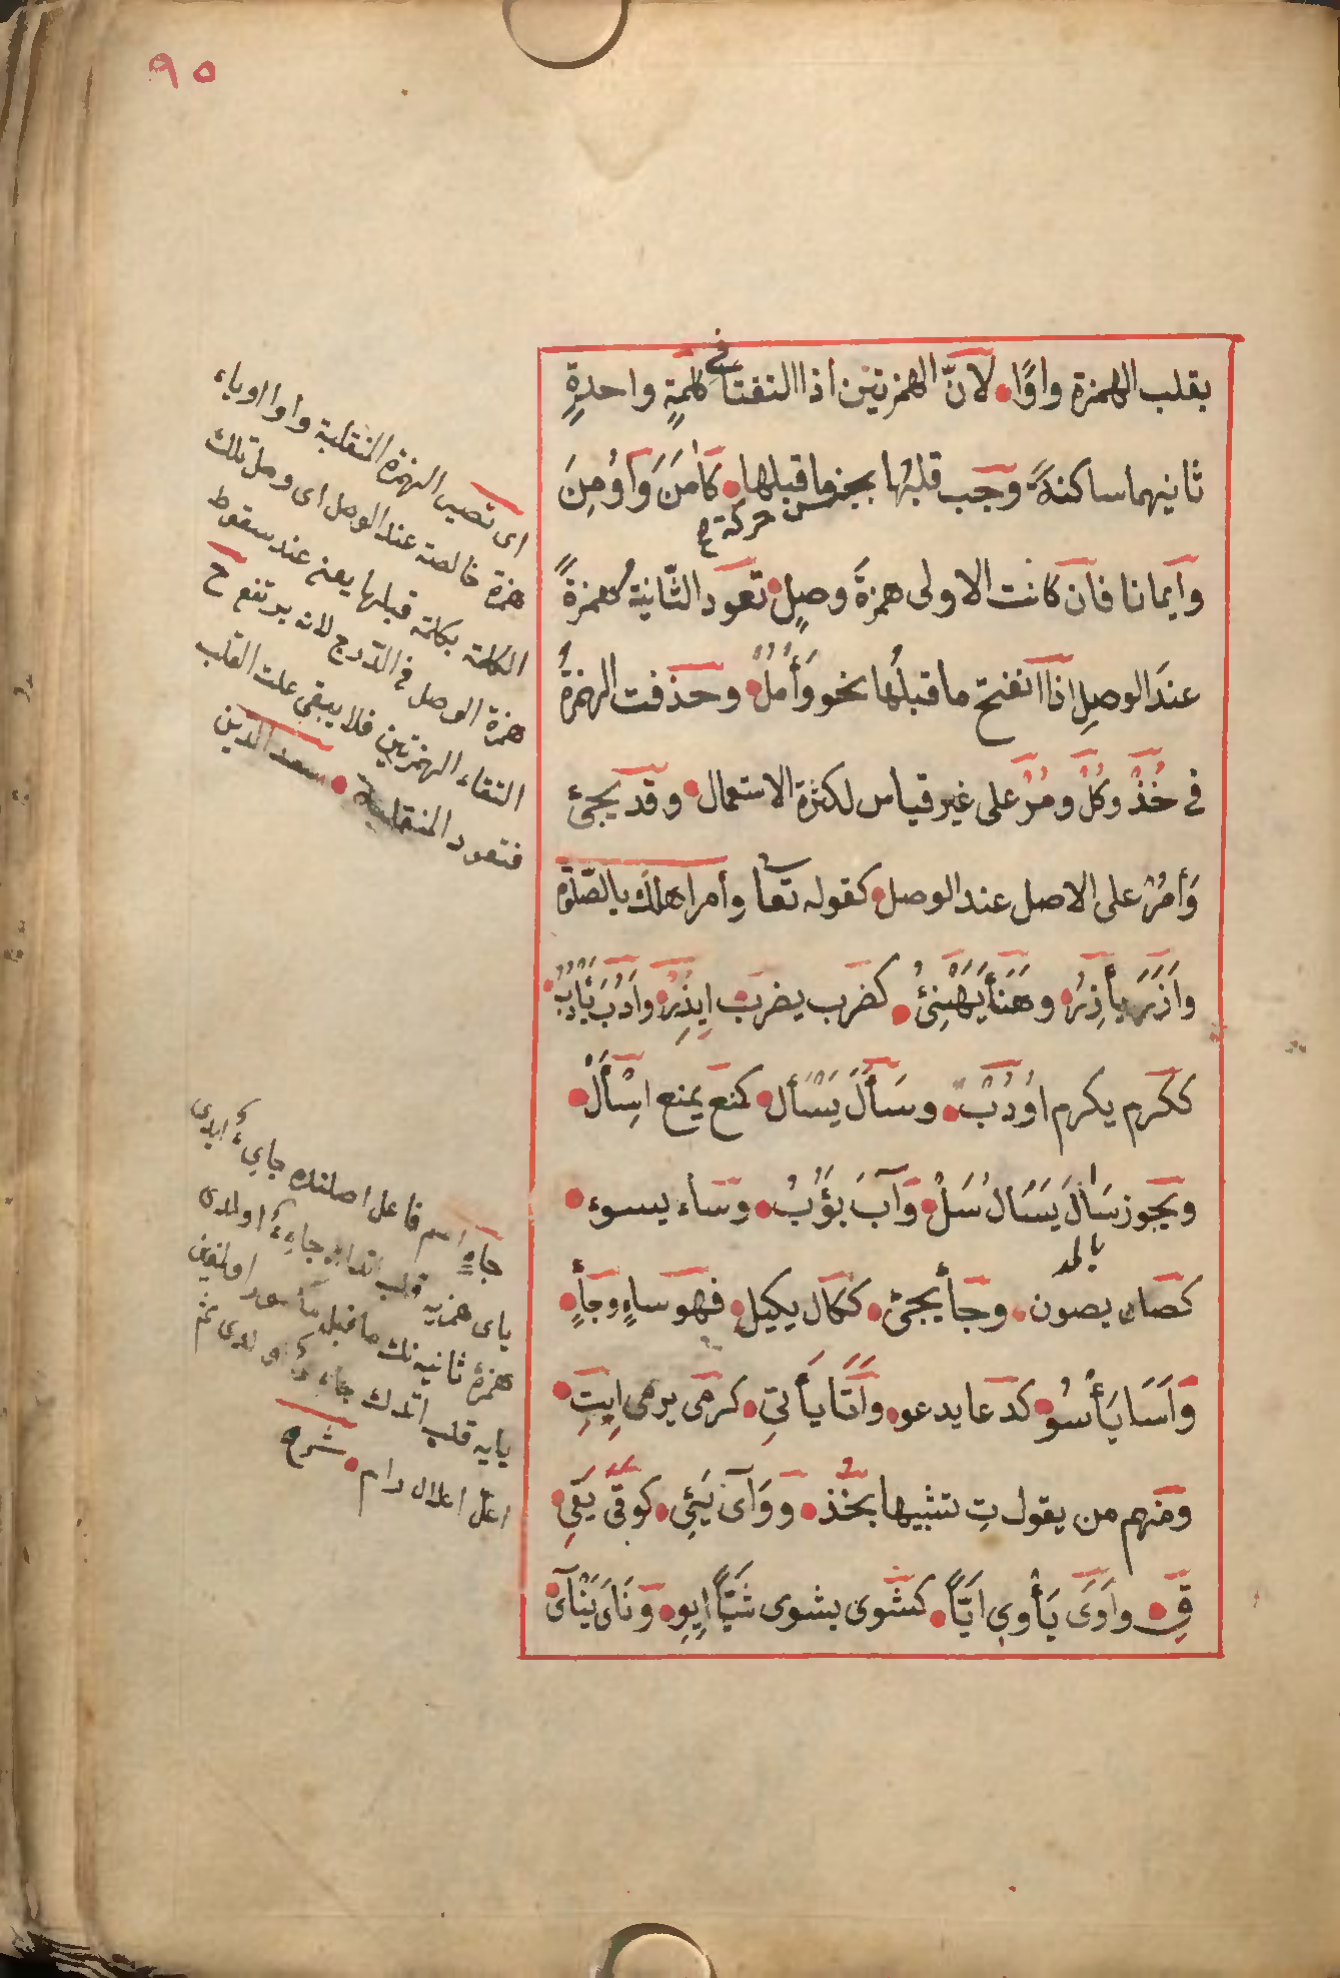 ٩٥
بقلب الهمزة واوًا لانّ الهمزتين اذا التفتا فى كلمةٍ واحدةٍ
ثانيهما ساكنةً وجب قلبُها بجنس ما قبلها كاٰمَنَ وَاُومِنَ
حركة
وايمانا فان كانت الاولى همزةَ وصلٍ تعود الثّانية همزةً
عندَ الوصلِ اذا انفتح ما قبلُها نحو وَأْمُلْ وحذفت الهمزةُ
فى خُذْ وكُلْ ومُرْ على غير قياس لكثرة الاستعمال وقد يجئ
وَأْمُرْ على الاصل عند الوصل كقوله تعا وأمر اهلك بالصّلوة
واَزَرَ يأْزِرُ وهَنَأَ يَهْنِئُ كضرب يضرب اِيزِرْ واَدُبَ يَأْدُبُ
ككرم يكرم اوُدُبْ وسَأَلَ يَسْأَل كمنع يمنع اسِْأَلْ
ويجوز سَالَ يَسَالُ سَلْ وَآبَ يَؤُبُ وسَاء يسوء
كصان يصون وجأ يجئ ككال يكيل فهو ساءٍ وجاءٍ
بالمد
وَاَسَا يَأْسُو كدعا يدعو واَتَا يأتِى كرمى يرمى ايتِ
ومنهم من يقول تِ تشبيها بخُذ ووَآى يَئِى كوقى يَقِى
قِ واَوَى يَأْوِى اَيًّا كشوى يشوى شَيًّا ايِوِ ونَاَى يَنْآى
اى تصير الهمزة المنقلبة واوا او ياء
همزة خالصة عند الوصل اى وصل تلك
الكلمة بكلمة قبلها يعنى عند سقوط
همزة الوصل فى الدّرج لانه يرتفع ح
التقاء الهمزتين فلا يبقى علت القلب
فتعود المنقلبة سعد الدين
جاءٍ اسم فاعل اصلنده جايِئٌ ايدى
ياى همزيه قلب اتدك جاءِءٌ اولدى
همزۀ ثانيه نك ما قبلى مكسور اولمغين
يايه قلب اتدك اولدى ثم
اعلّ اعلال رام شرح